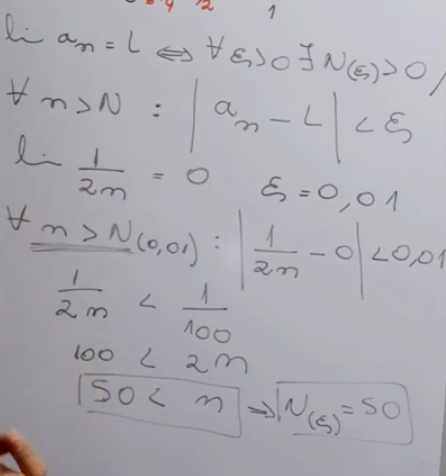 1
li aₙ = L ⇔ ∀ ε>0 ∃ N(ε)>0 /
∀ n>N : | aₙ - L | < ε
li 1/2n = 0 ε = 0,01
∀ n > N(0,01) : | 1/2n - 0 | < 0,01
1/2n < 1/100
100 < 2n
50 < n → N(ε) = 50